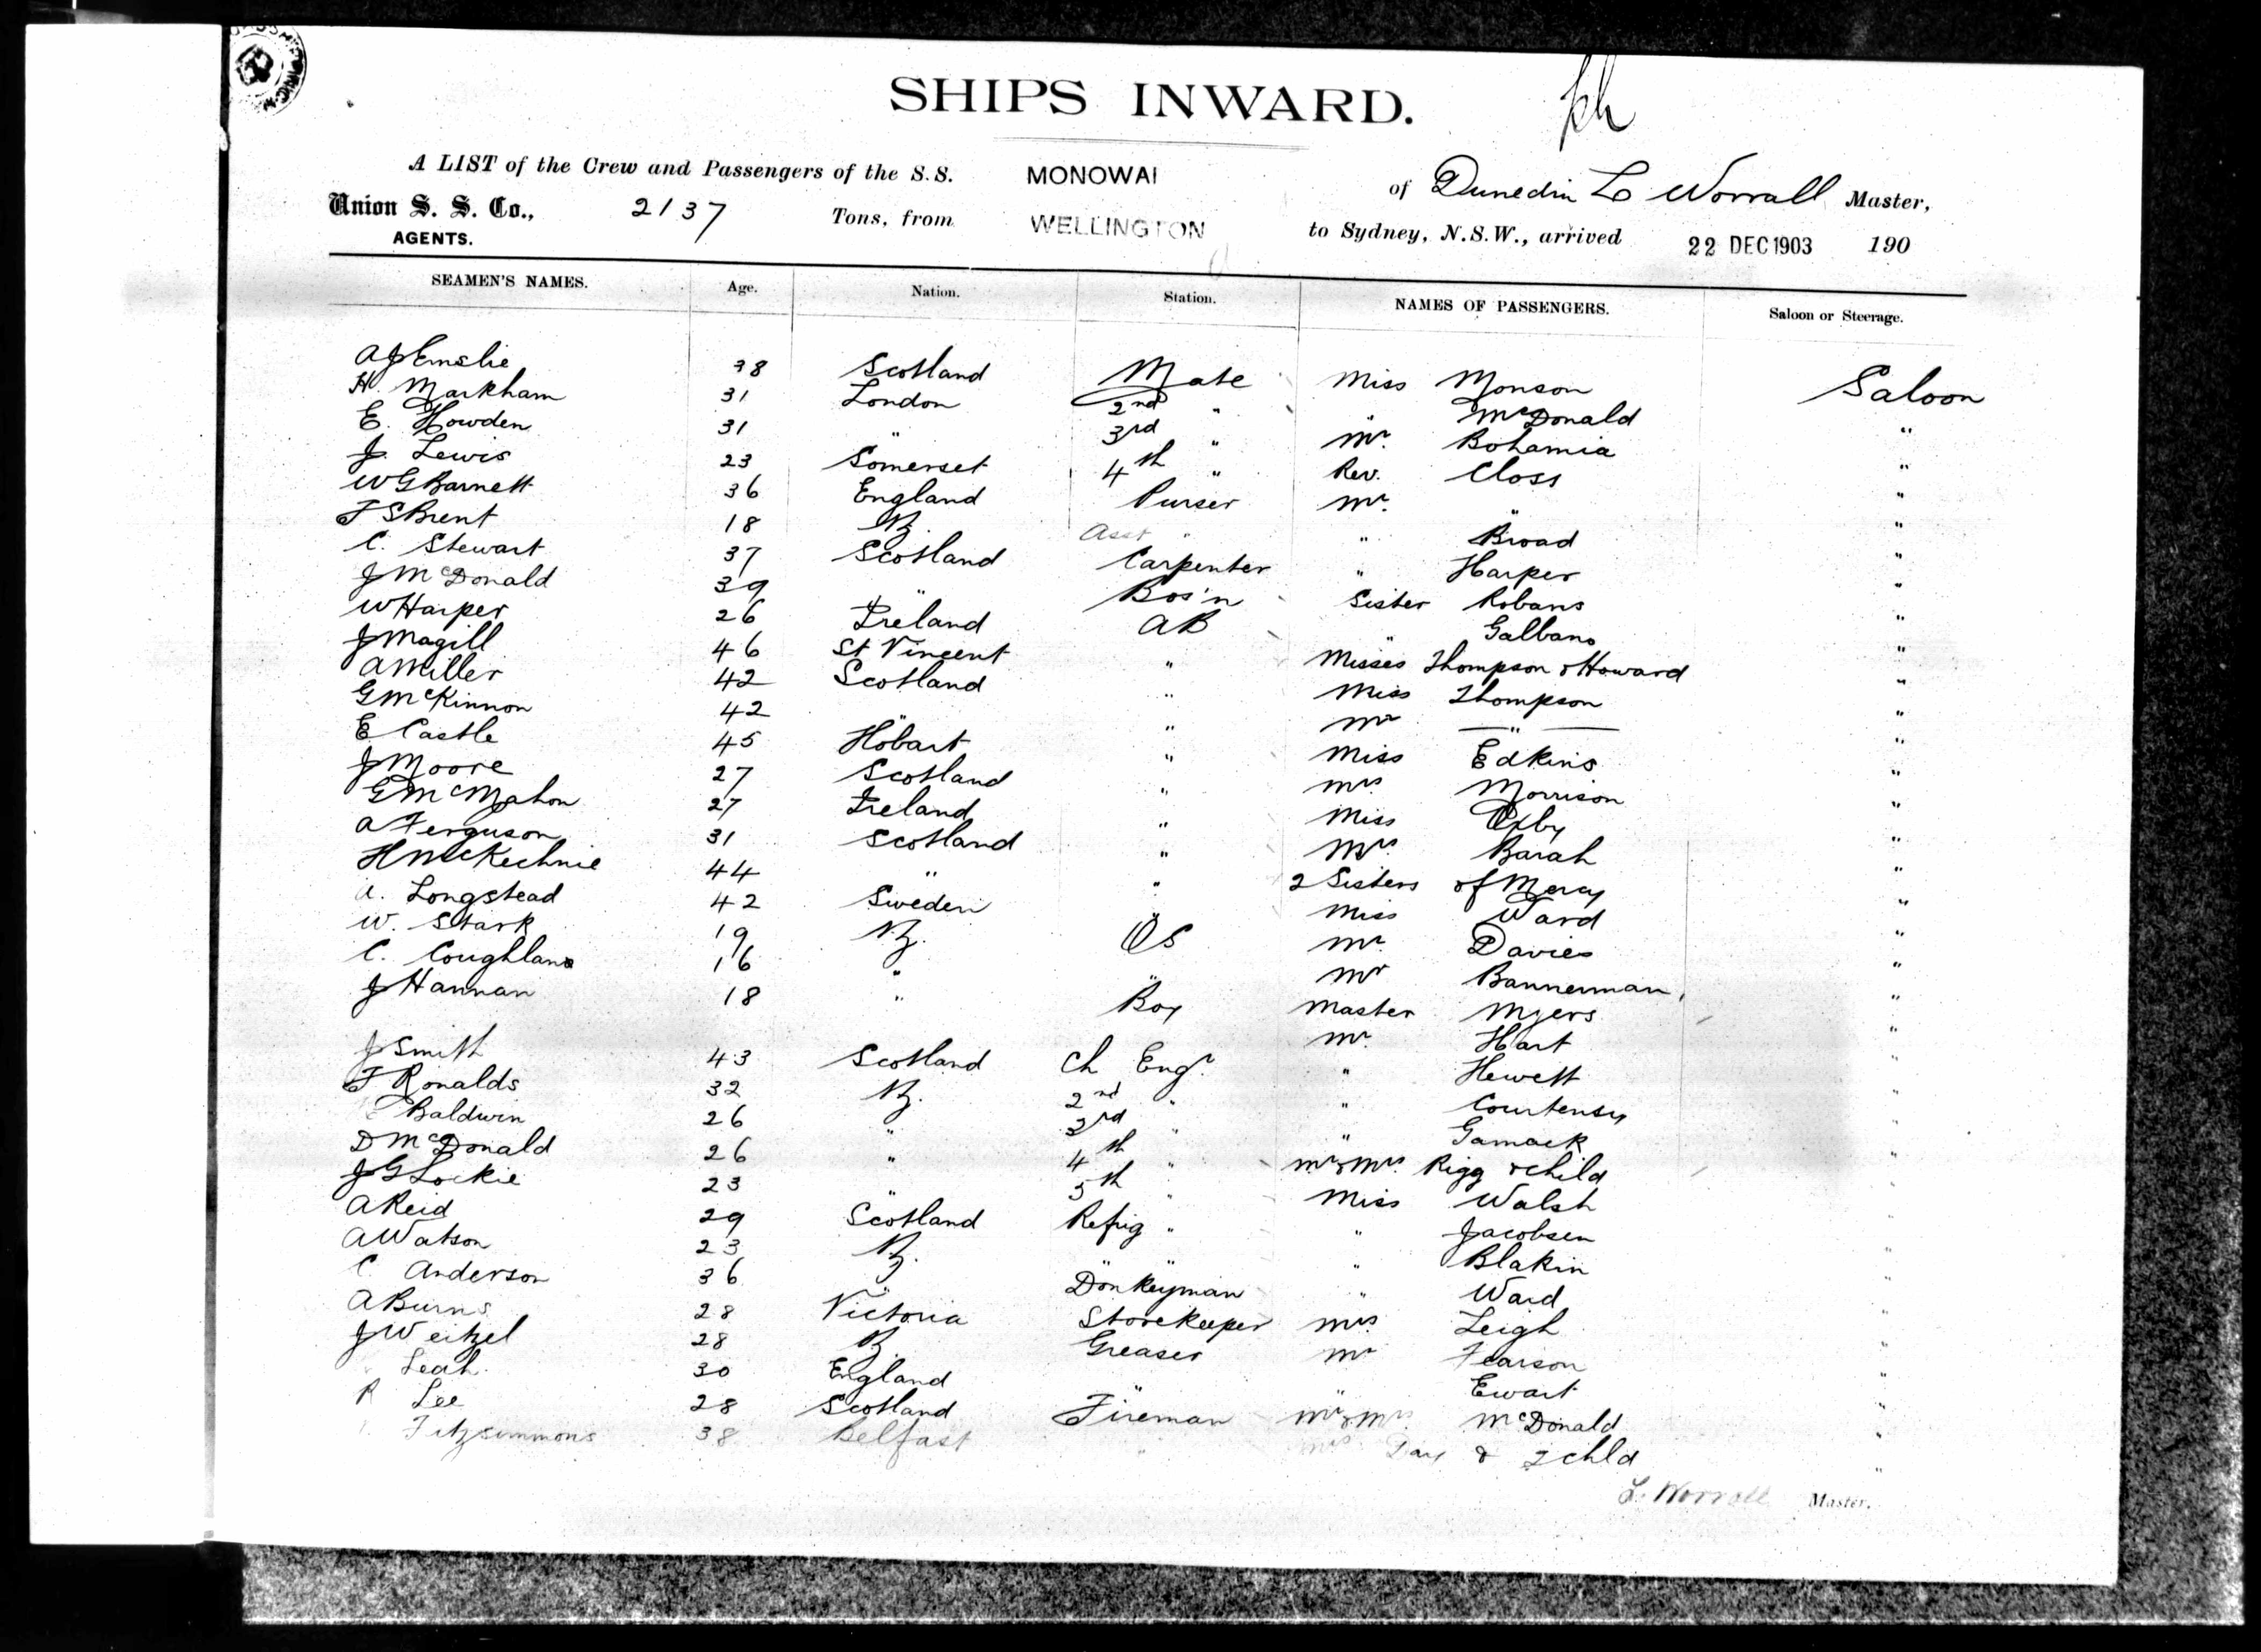 SHIPS INWARD.
A LIST of the Crew and Passengers of the S.S. MONOWAI of Dunedin L Worrall Master,
Union S. S. Co., 2137 Tons, from WELLINGTON to Sydney, N.S.W., arrived 22 DEC 1903 190
AGENTS.
SEAMEN'S NAMES. Age. Nation. Station. NAMES OF PASSENGERS. Saloon or Steerage.
A J Emslie 38 Scotland Mate Miss Monson Saloon
H. Markham 31 London 2nd " " McDonald "
E. Howden 31 " 3rd " Mr. Bohamia "
J. Lewis 23 Somerset 4th " Rev. Closs "
W G Barnett 36 England Purser Mr. " "
F S Brent 18 NZ. Asst " " Broad "
C. Stewart 37 Scotland Carpenter " Harper "
J McDonald 39 " Bos'n Sister Robans "
W Harper 26 Ireland AB " Galbans "
J Magill 46 St Vincent " Misses Thompson & Howard "
A Miller 42 Scotland " Miss Thompson "
G McKinnon 42 " " Mr — " — "
E Castle 45 Hobart " Miss Edkins "
J Moore 27 Scotland " Mrs Morrison "
G McMahon 27 Ireland " Miss Oxby "
A Ferguson 31 Scotland " Mrs. Barah "
H McKechnie 44 " " 2 Sisters of Mercy "
A. Longstead 42 Sweden " Miss Ward "
W. Stark 19 NZ. OS Mr. Davies "
C. Coughlan 16 " " Mr Bannerman, "
J Hannan 18 " Boy Master Myers "
Mr. Hart "
J Smith 43 Scotland Ch Engr " Hewett "
F Ronalds 32 NZ. 2nd " " Courtenay "
Baldwin 26 " 3rd " " Gamack "
D McDonald 26 " 4th " Mr & Mrs. Rigg & child "
J G Lockie 23 " 5th " Miss Walsh "
A Reid 29 Scotland Refrig " " Jacobsen "
A Watson 23 NZ. " " Blakin "
C Anderson 36 " Donkeyman " Ward "
A Burns 28 Victoria Storekeeper Mrs Leigh "
J Weitzel 28 NZ. Greaser Mr Fearson "
Leah 30 England " " Ewart "
R Lee 28 Scotland Fireman Mr & Mrs. McDonald "
Fitzsimmons 38 Belfast " Mrs Day & 2 chld "
L. Worrall Master.